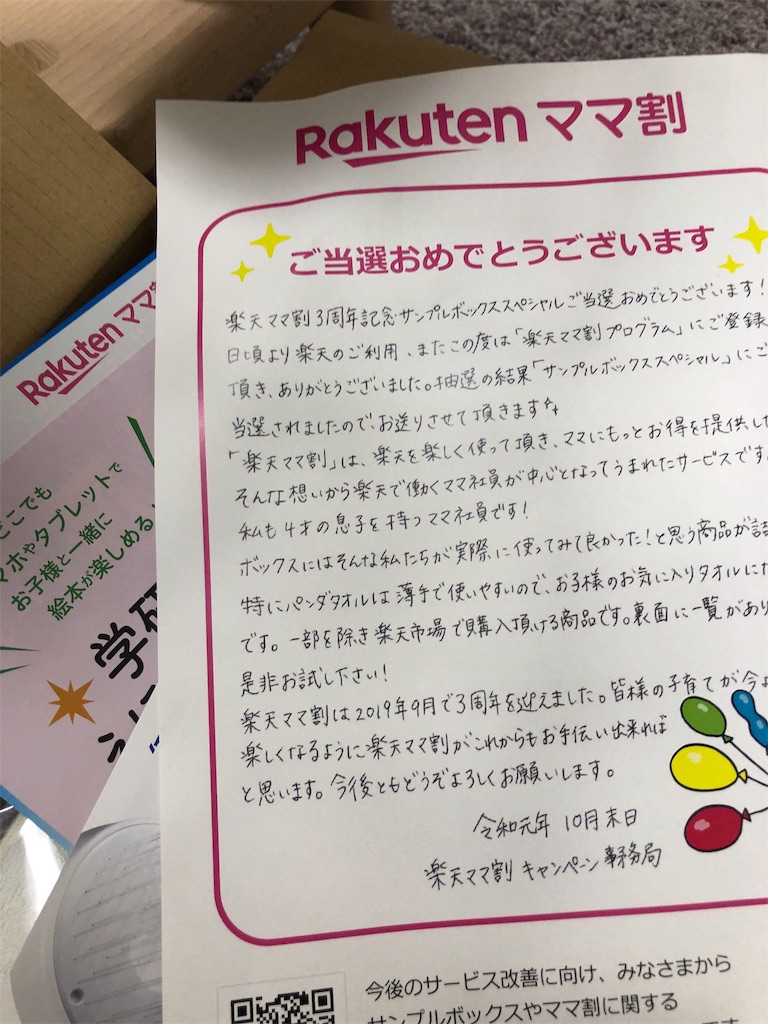 Rakuten ママ割
ご当選おめでとうございます
楽天ママ割3周年記念サンプルボックススペシャルご当選おめでとうございます!
日頃より楽天のご利用、またこの度は「楽天ママ割プログラム」にご登録
頂き、ありがとうございました。抽選の結果「サンプルボックススペシャル」にご
当選されましたので、お送りさせて頂きます
「楽天ママ割」は、楽天を楽しく使って頂き、ママにもっとお得を提供した
そんな想いから楽天で働くママ社員が中心となってうまれたサービスです。
私も4才の息子を持つママ社員です!
ボックスにはそんな私たちが実際に使ってみて良かった!と思う商品が詰
特にパンダタオルは薄手で使いやすいので、お子様のお気に入りタオルにな
です。一部を除き楽天市場で購入頂ける商品です。裏面に一覧があり
是非お試し下さい!
楽天ママ割は2019年9月で3周年を迎えました。皆様の子育てが今よ
楽しくなるように楽天ママ割がこれからもお手伝い出来れば
と思います。今後ともどうぞよろしくお願いします。
令和元年 10月末日
楽天ママ割 キャンペーン事務局
今後のサービス改善に向け、みなさまから
サンプルボックスやママ割に関する
Rakuten ママ割
どこでも
マホやタブレットで
お子様と一緒に
絵本が楽しめる
学研